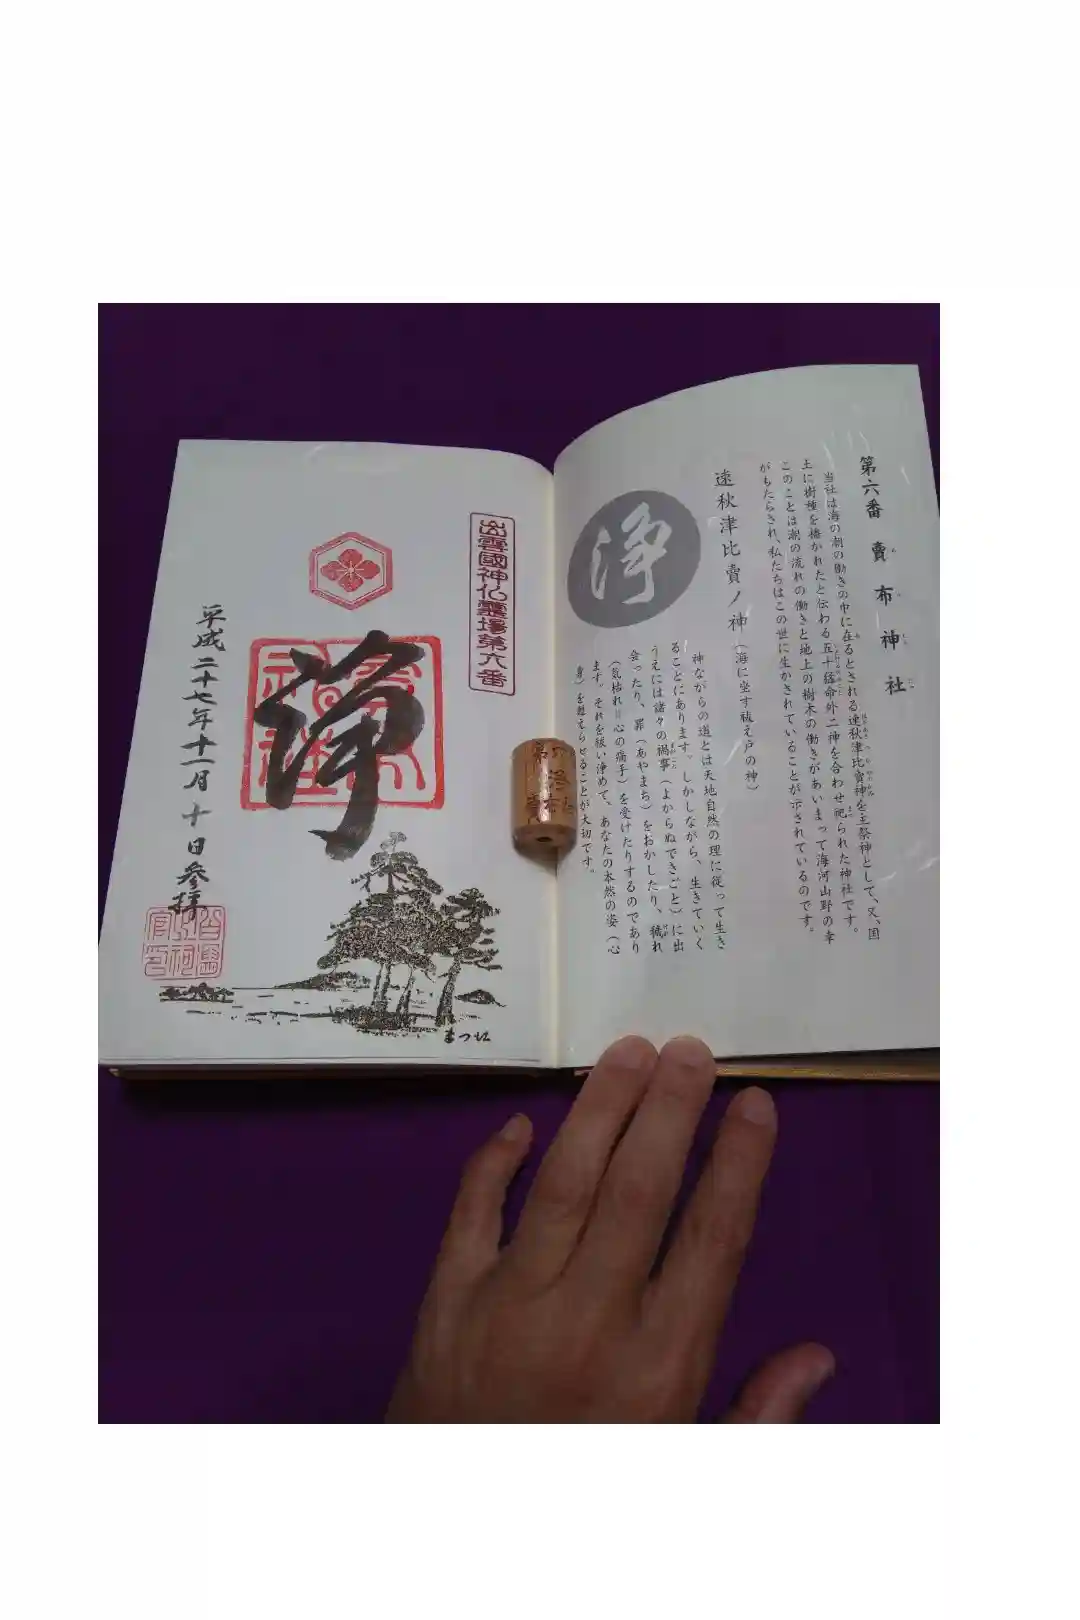 第六番 賣布神社
当社は海の潮の働きの中に在るとされる速秋津比賣神を主祭神として、又、国
土に樹種を播かれたと伝わる五十猛命外二神を合わせ祀られた神社です。
このことは潮の流れの働きと地上の樹木の働きがあいまって海河山野の幸
がもたらされ、私たちはこの世に生かされていることが示されているのです。
速秋津比賣ノ神(海に坐す祓え戸の神)
浄
神ながらの道とは天地自然の理に従って生き
ることにあります。しかしながら、生きていく
うえには諸々の禍事(よからぬできごと)に出
会ったり、罪(あやまち)をおかしたり、穢れ
(気枯れ=心の痛手)を受けたりするのであり
ます。それを祓い浄めて、あなたの本然の姿(心
身)を甦えらせることが大切です。
出雲國神仏霊場第六番
浄
平成二十七年十一月十日参拝
まつえ